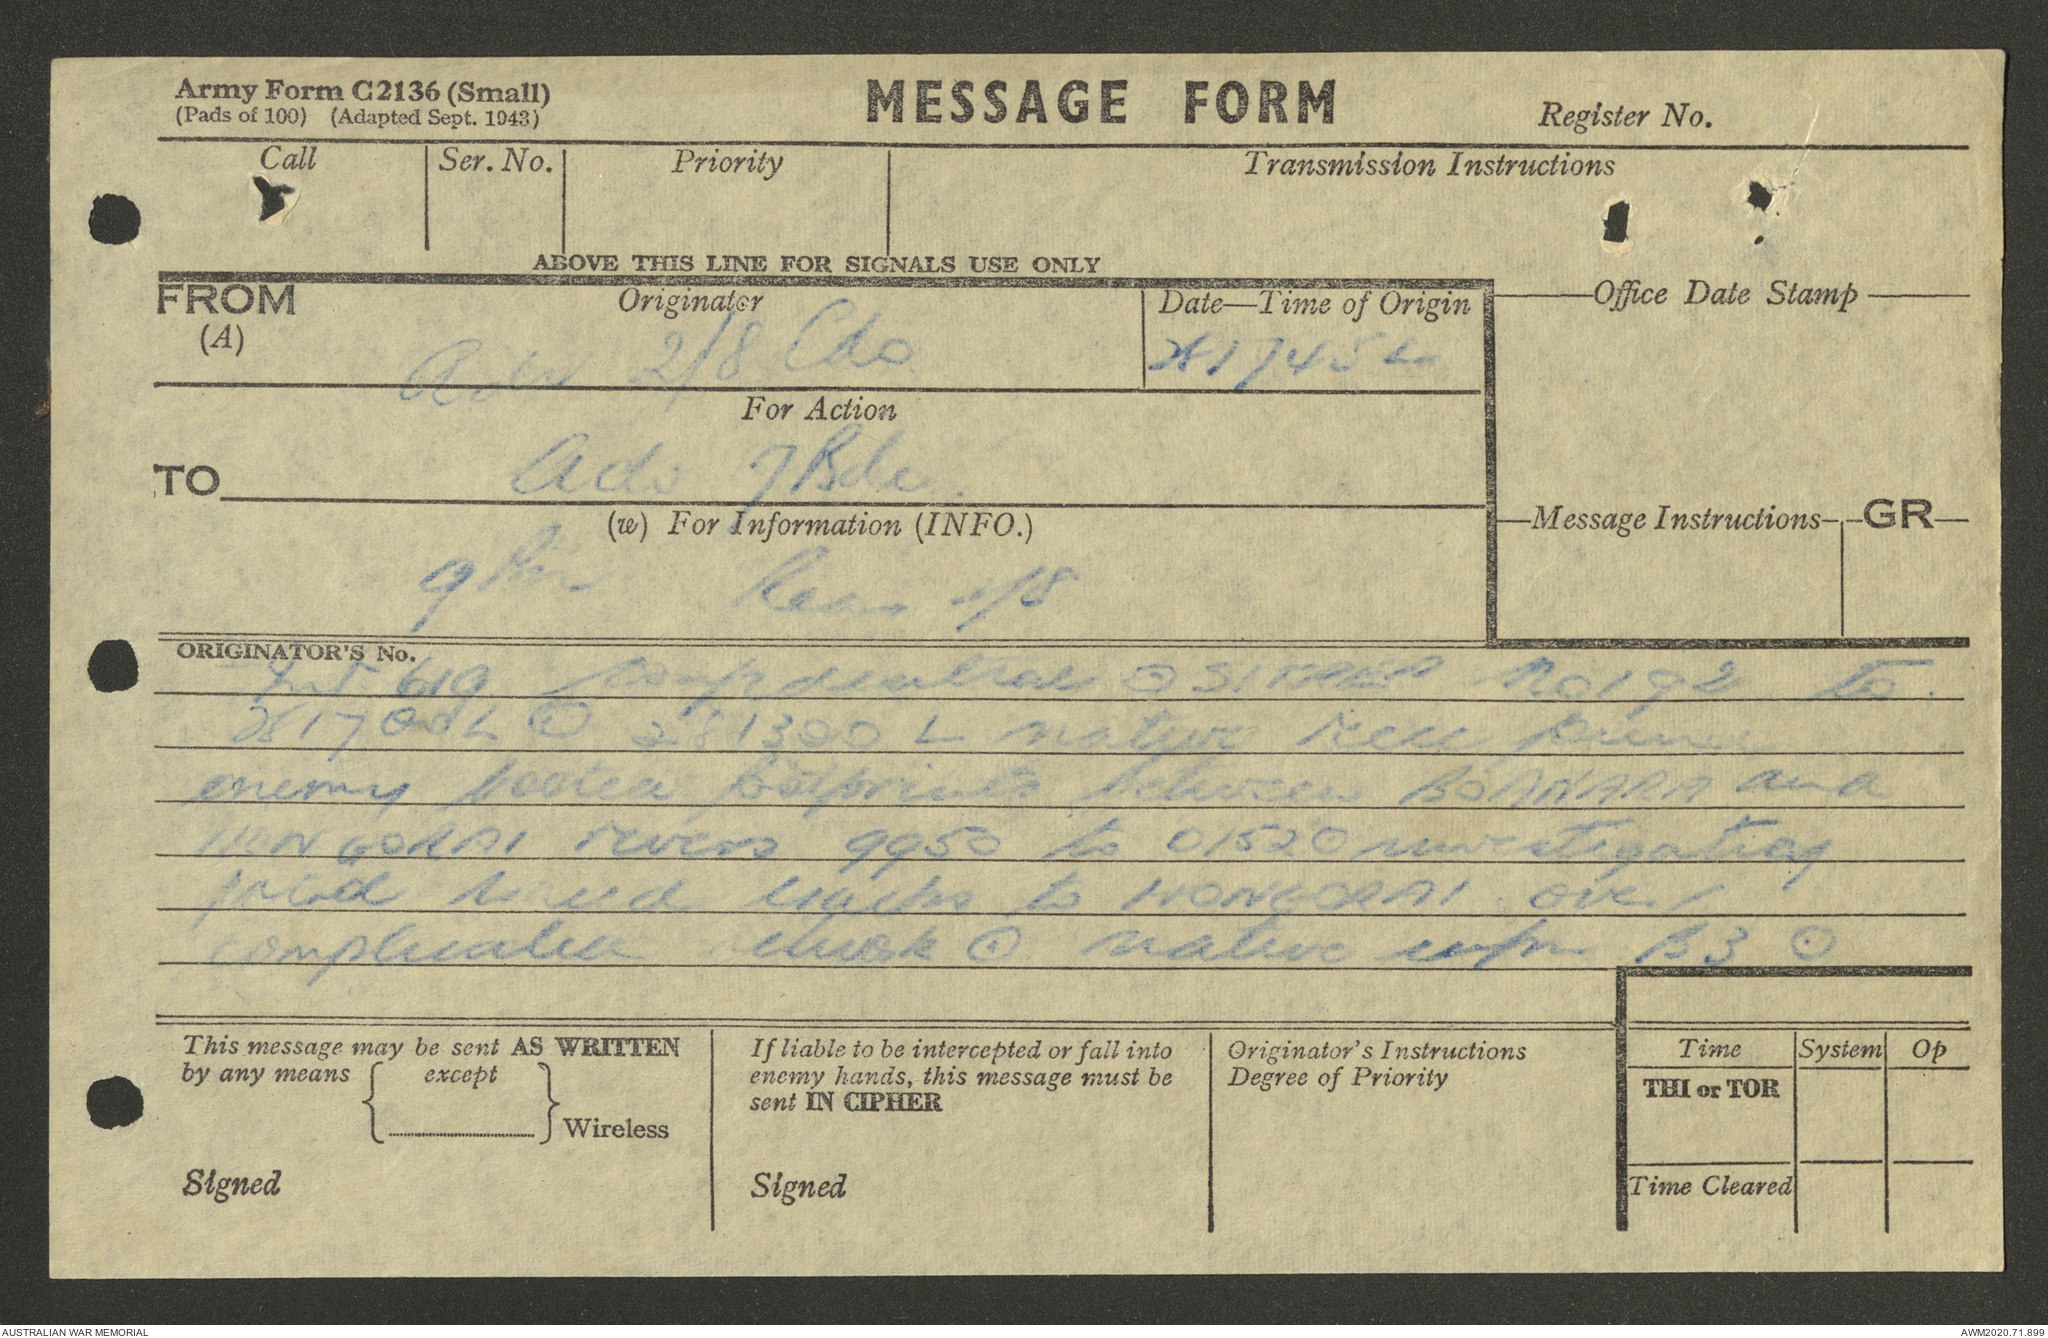 Army Form C2136 (Small)
(Pads of 100) (Adapted Sept. 1943)
MESSAGE FORM
Register No.
Call
Ser. No.
Priority
Transmission Instructions
ABOVE THIS LINE FOR SIGNALS USE ONLY
FROM
(A)
Originator
Adv 2/8 Cdo
Date—Time of Origin
281745L
Office Date Stamp
For Action
TO
Adv 7 Bde.
(w) For Information (INFO.)
Rear 2/8
Message Instructions
GR
ORIGINATOR'S No.
Int 619 confidential ⊙ SITREP No 192 to
281700L ⊙ 281300 L native recce
enemy booted footprints between BOANARA and
HONGORAI rivers 9950 to 0152 ⊙ investigating
tracks to HONGORAI over
⊙ native infm B3 ⊙
This message may be sent AS WRITTEN
by any means except
Wireless
Signed
If liable to be intercepted or fall into
enemy hands, this message must be
sent IN CIPHER
Signed
Originator's Instructions
Degree of Priority
Time
System
Op
THI or TOR
Time Cleared
AUSTRALIAN WAR MEMORIAL
AWM2020.71.899